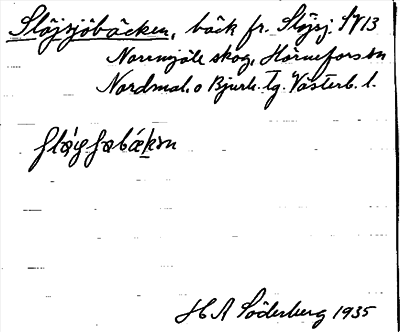 Slöjsjöbäcken, bäck fr. Slöjsj. SV13
Norrmjöle skog, Hörnefors sn
Nordmal. o Bjurh. tg. Västerb. l.
H A Söderberg 1935